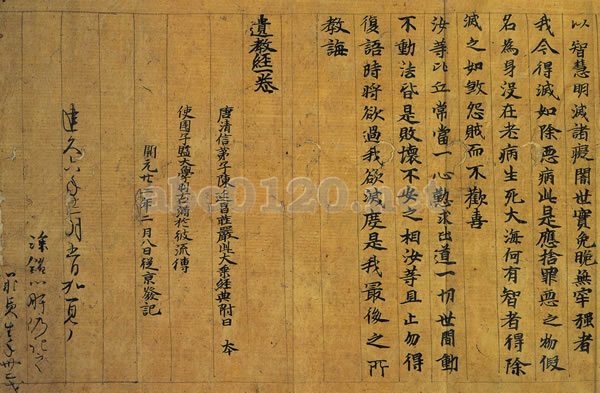 以智慧明滅諸癡闇世實危脆無牢強者
我今得滅如除惡病此是應捨罪惡之物假
名為身沒在老病生死大海何有智者得除
滅之如煞怨賊而不歡喜
汝等比丘常當一心懃求出道一切世間動
不動法皆是敗壞不安之相汝等且止勿得
復語時將欲過我欲滅度是我最後之所
教誨
遺教經一卷
唐清信弟子陳延昌莊嚴此大乘經典附日本
使國子監大學朋古滿於彼流傳
開元廿二年二月八日從京發記
建久六年月日一見了